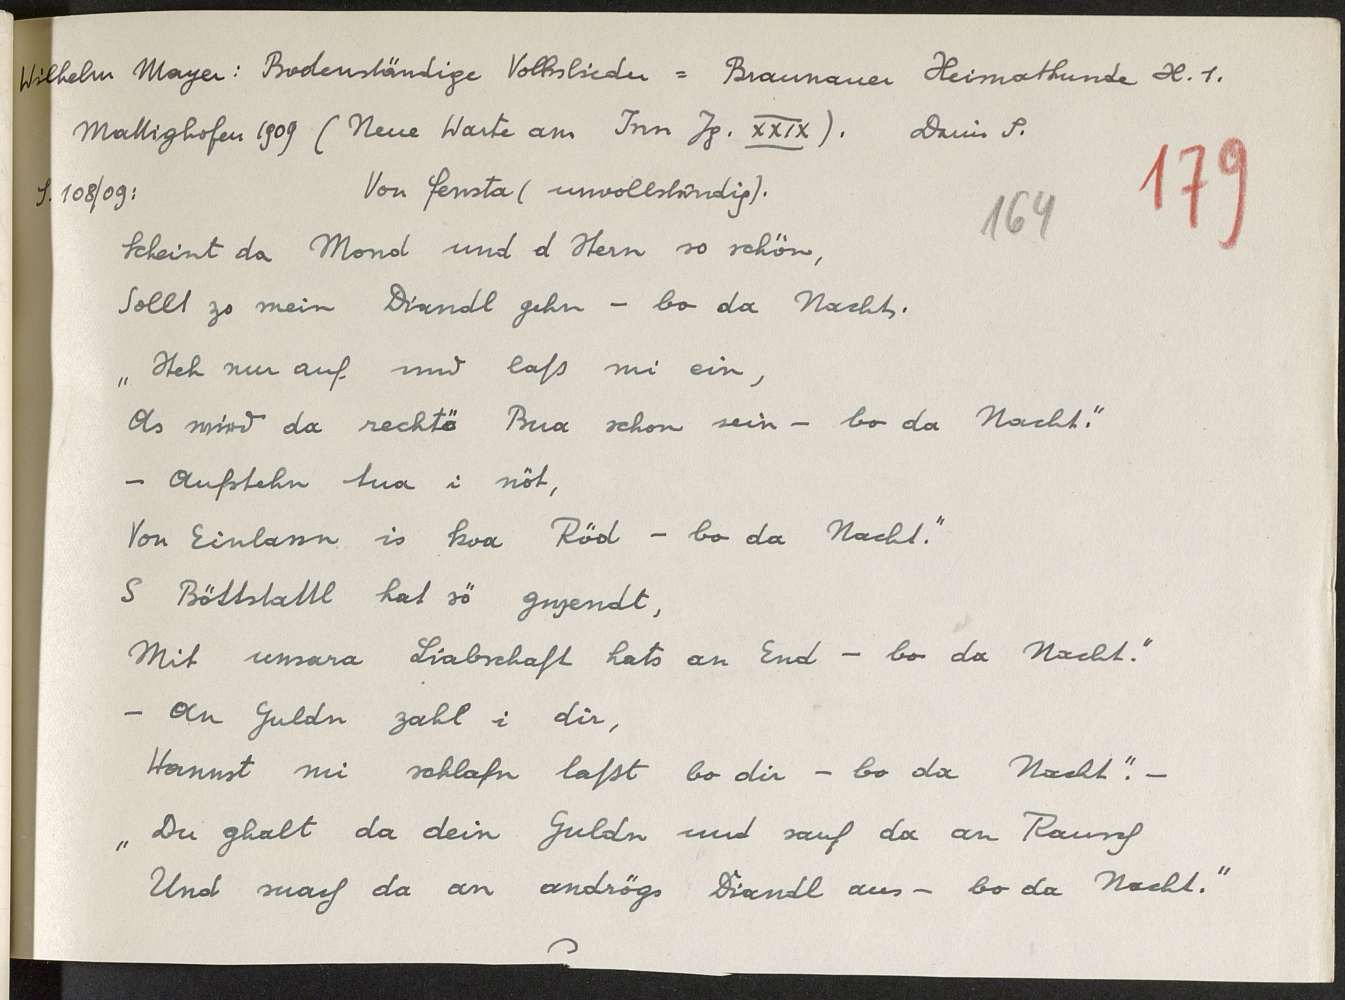 Wilhelm Mayer: Bodenständige Volkslieder = Braunauer Heimatkunde H. 1.
Mattighofen 1909 (Neue Warte am Inn Jg. XXIX). Darin S.
179
S. 108/09: Von fensta (unvollständig).
164
Scheint da Mond und d Stern so schön,
Sollt zo mein Diandl gehn – bo da Nacht.
„Steh nur auf und laß mi ein,
As wird da rechtö Bua schon sein – bo da Nacht."
– Aufstehn tua i nöt,
Von Einlassn is koa Röd – bo da Nacht."
S Böttstattl hat sö gwendt,
Mit unsara Liabschaft hats an End – bo da Nacht."
– An Guldn zahl i dir,
Wannst mi schlafn laßt bo dir – bo da Nacht". –
„Du ghalt da dein Guldn und sauf da an Rausch
Und suach da an andrögs Diandl aus – bo da Nacht."